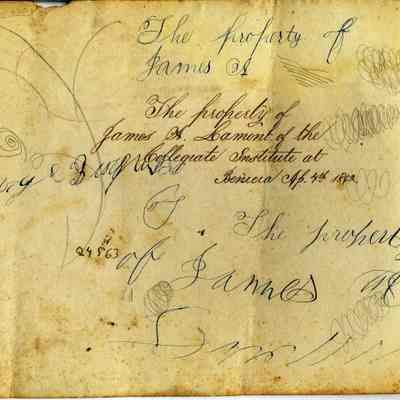 The property of
James A
The property of
James A. Lamont of the
Collegiate Institute at
Benicia Ap. 4th
The property
of James
24563